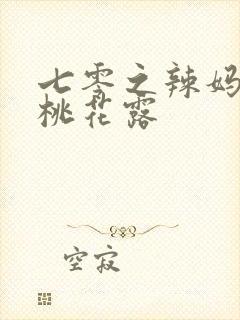 七零之辣妈
桃花露
空寂